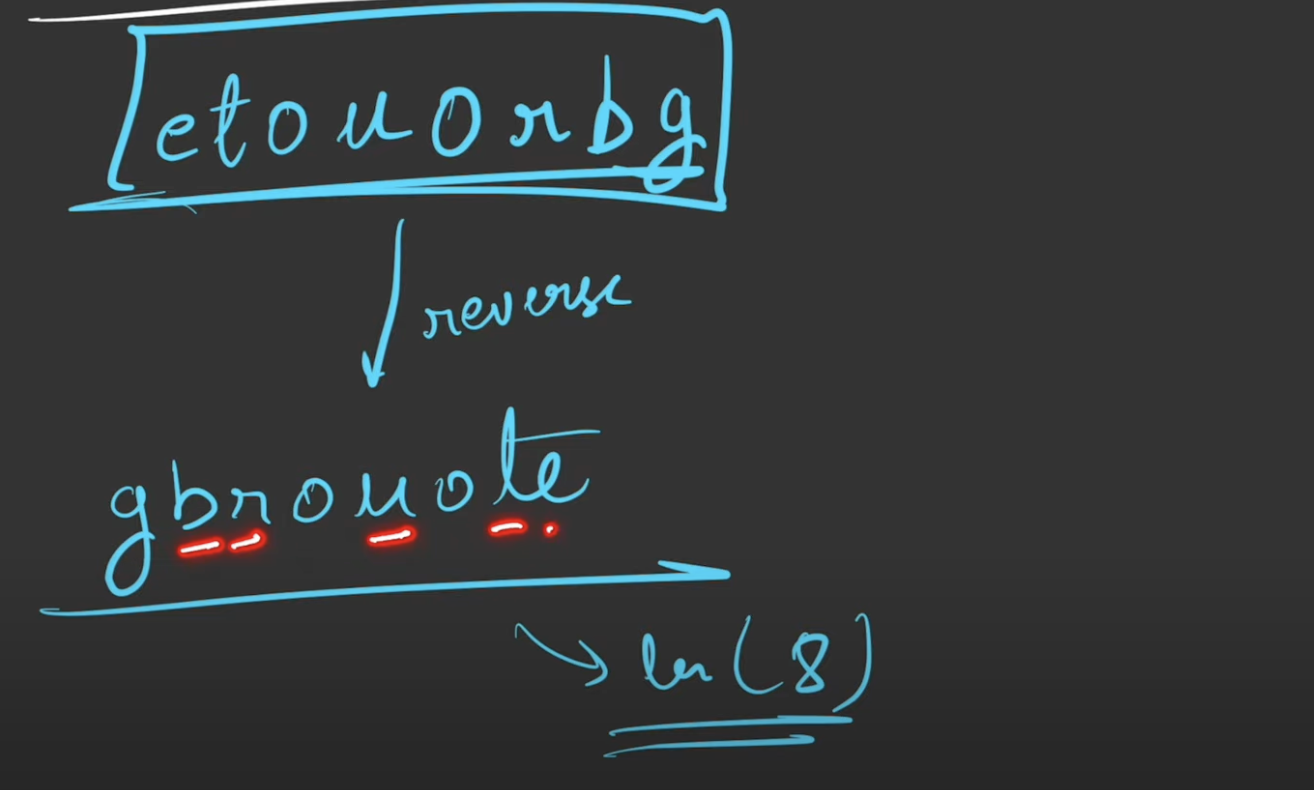 etouorbg
reverse
gbrouote
len(8)